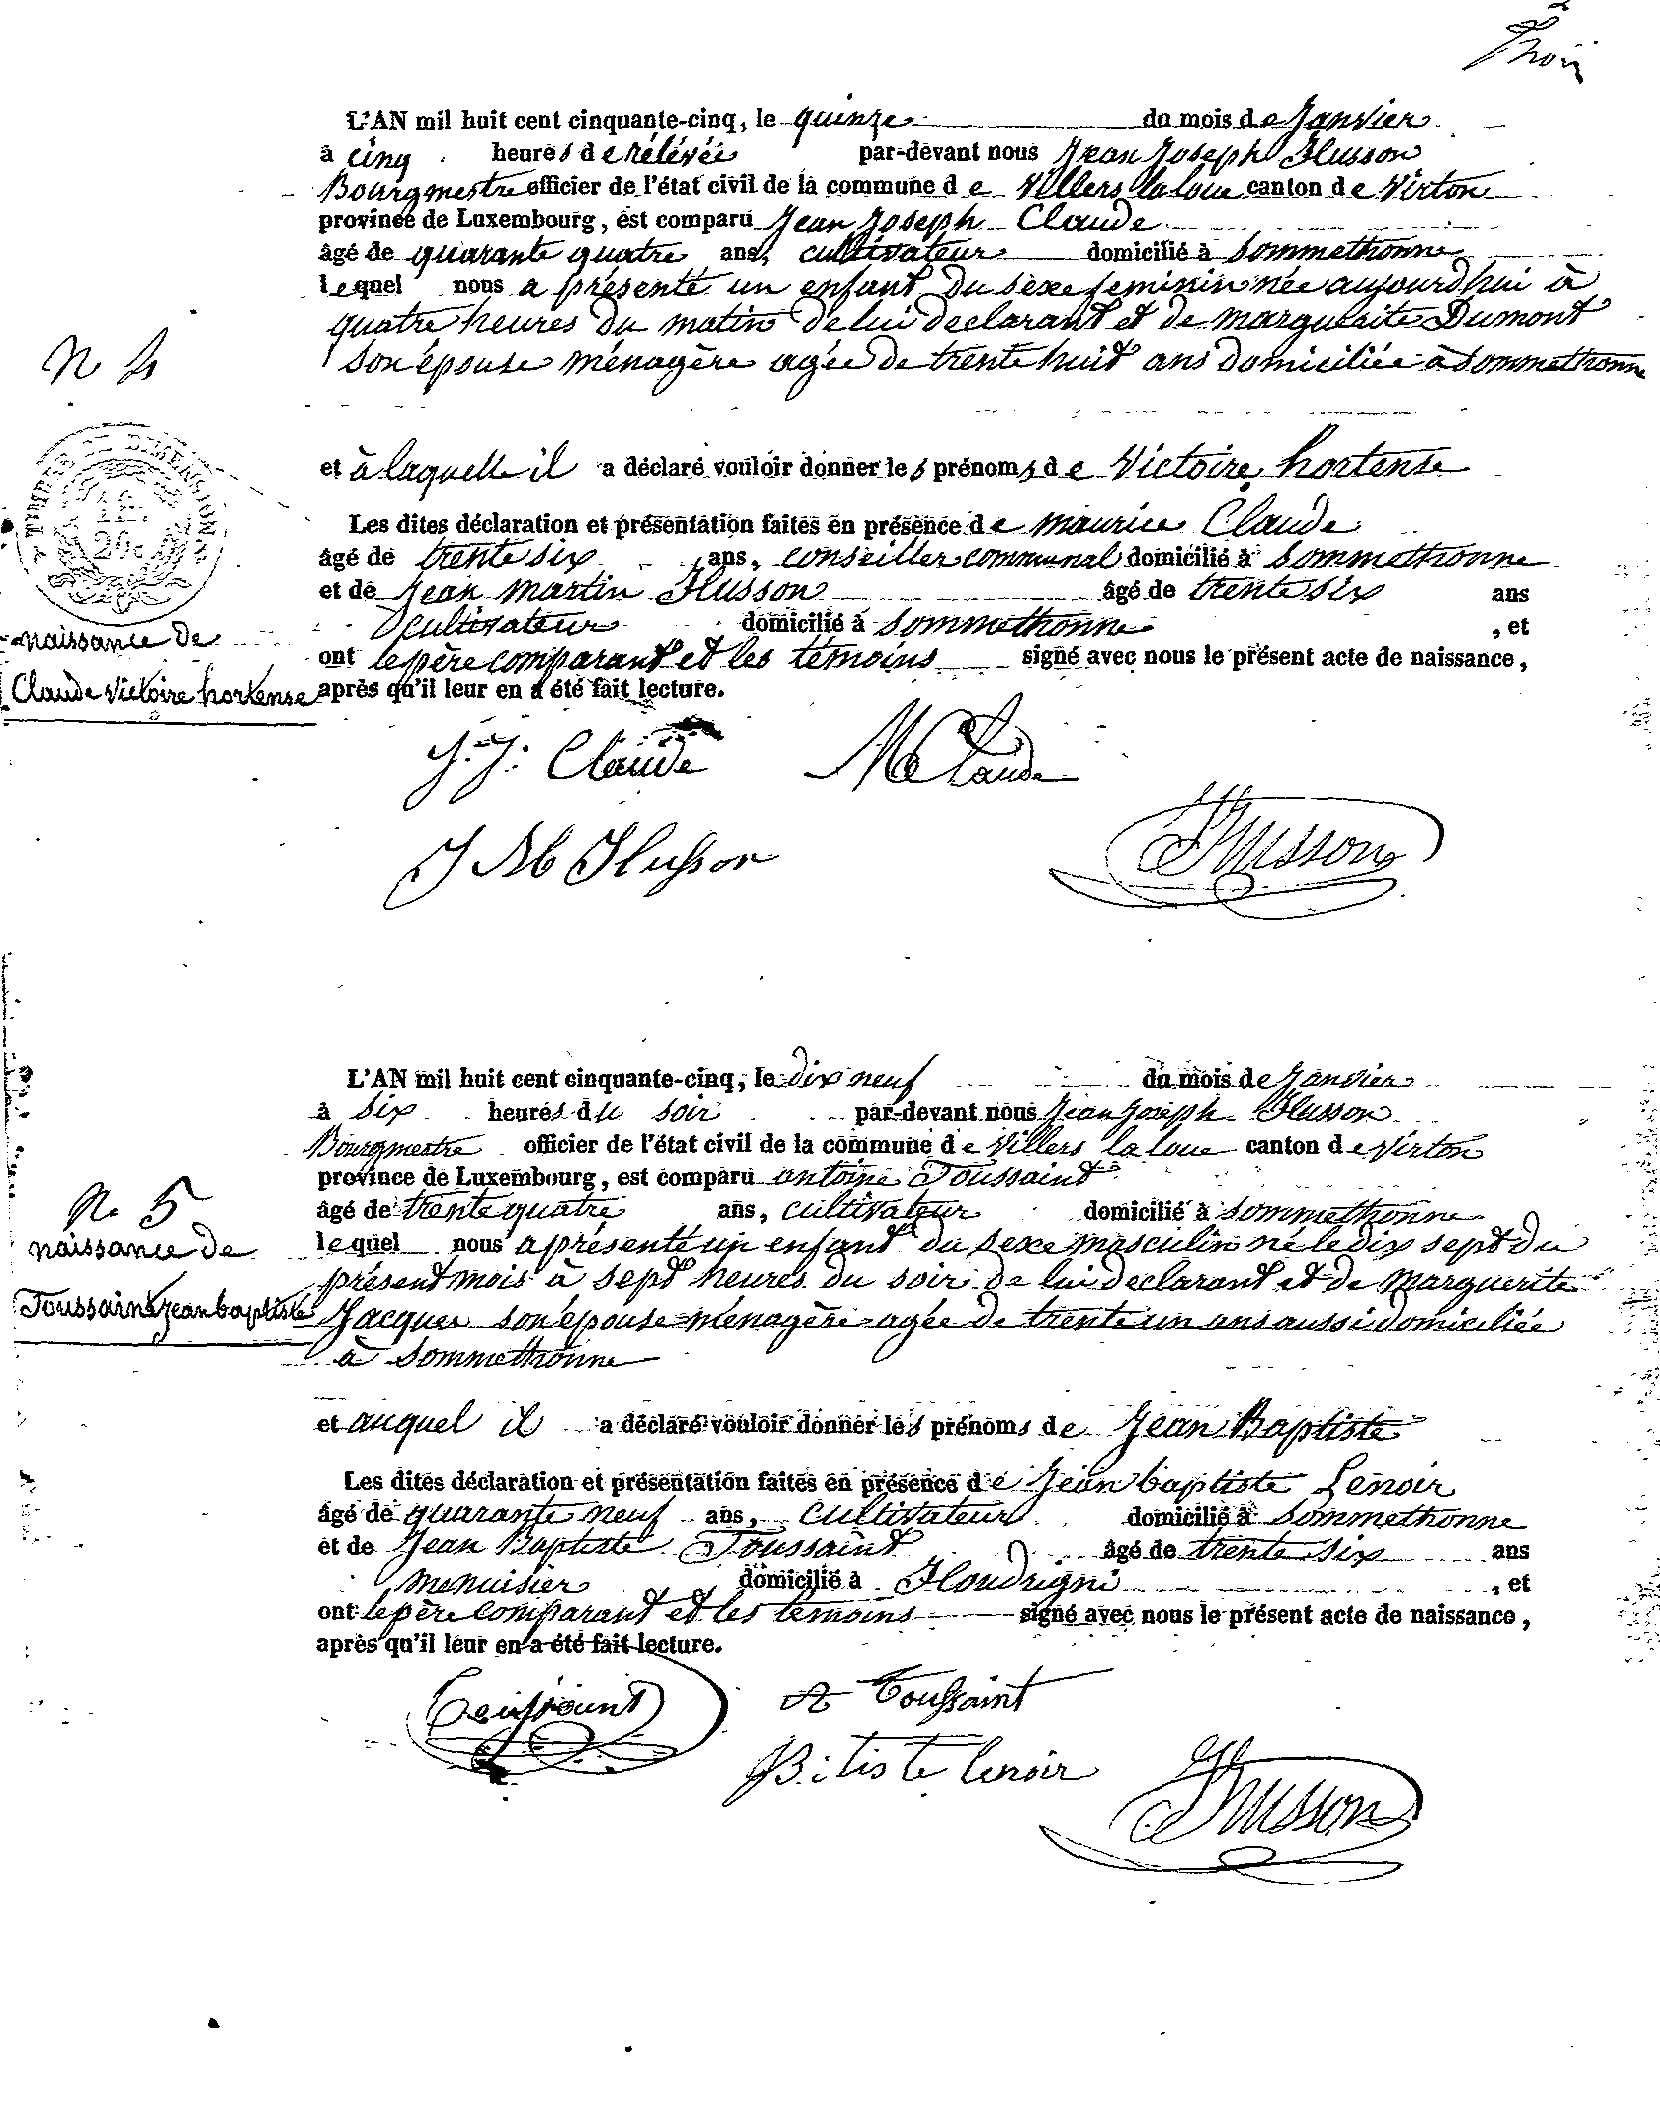 L'AN mil huit cent cinquante-cinq, le quinze du mois de Janvier
à cinq heures de rélévée par-devant nous Jean Joseph Husson
Bourgmestre officier de l'état civil de la commune de Villers la loue canton de Virton
province de Luxembourg, est comparu Jean Joseph Claude
âgé de quarante quatre ans, cultivateur domicilié à Sommethonne
lequel nous a présenté un enfant du sexe feminin née aujourd'hui à
quatre heures du matin de lui declarant et de marguerite Dumont
son épouse ménagère agée de trente huit ans domiciliée à Sommethonne
N 4
et à laquelle il a déclaré vouloir donner les prénoms de Victoire hortense
Les dites déclaration et présentation faites en présence de maurice Claude
âgé de trente six ans, conseiller communal domicilié à Sommethonne
et de Jean martin Husson âgé de trente six ans
cultivateur domicilié à Sommethonne, et
ont le père comparant et les témoins signé avec nous le présent acte de naissance,
après qu'il leur en a été fait lecture.
TIMBRE DE DIMENSION
naissance de
Claude Victoire hortense
J. J. Claude M Claude
J M Husson Husson
L'AN mil huit cent cinquante-cinq, le dix neuf du mois de Janvier
à six heures du soir par-devant nous Jean Joseph Husson
Bourgmestre officier de l'état civil de la commune de Villers la loue canton de Virton
province de Luxembourg, est comparu antoine Toussaint
âgé de trente quatre ans, cultivateur domicilié à Sommethonne
lequel nous a présenté un enfant du sexe masculin né le dix sept du
présent mois à sept heures du soir de lui declarant et de Marguerite
Jacques son épouse ménagère agée de trente un ans aussi domiciliée
à Sommethonne
N. 5
naissance de
Toussaint jean baptiste
et auquel il a déclaré vouloir donner les prénoms de Jean Baptiste
Les dites déclaration et présentation faites en présence de Jean baptiste Lenoir
âgé de quarante neuf ans, cultivateur domicilié à Sommethonne
et de Jean Baptiste Toussaint âgé de trente six ans
menuisier domicilié à Houdrigni, et
ont le père comparant et les témoins signé avec nous le présent acte de naissance,
après qu'il leur en a été fait lecture.
Toussaint A Toussaint
Batiste lenoir Husson